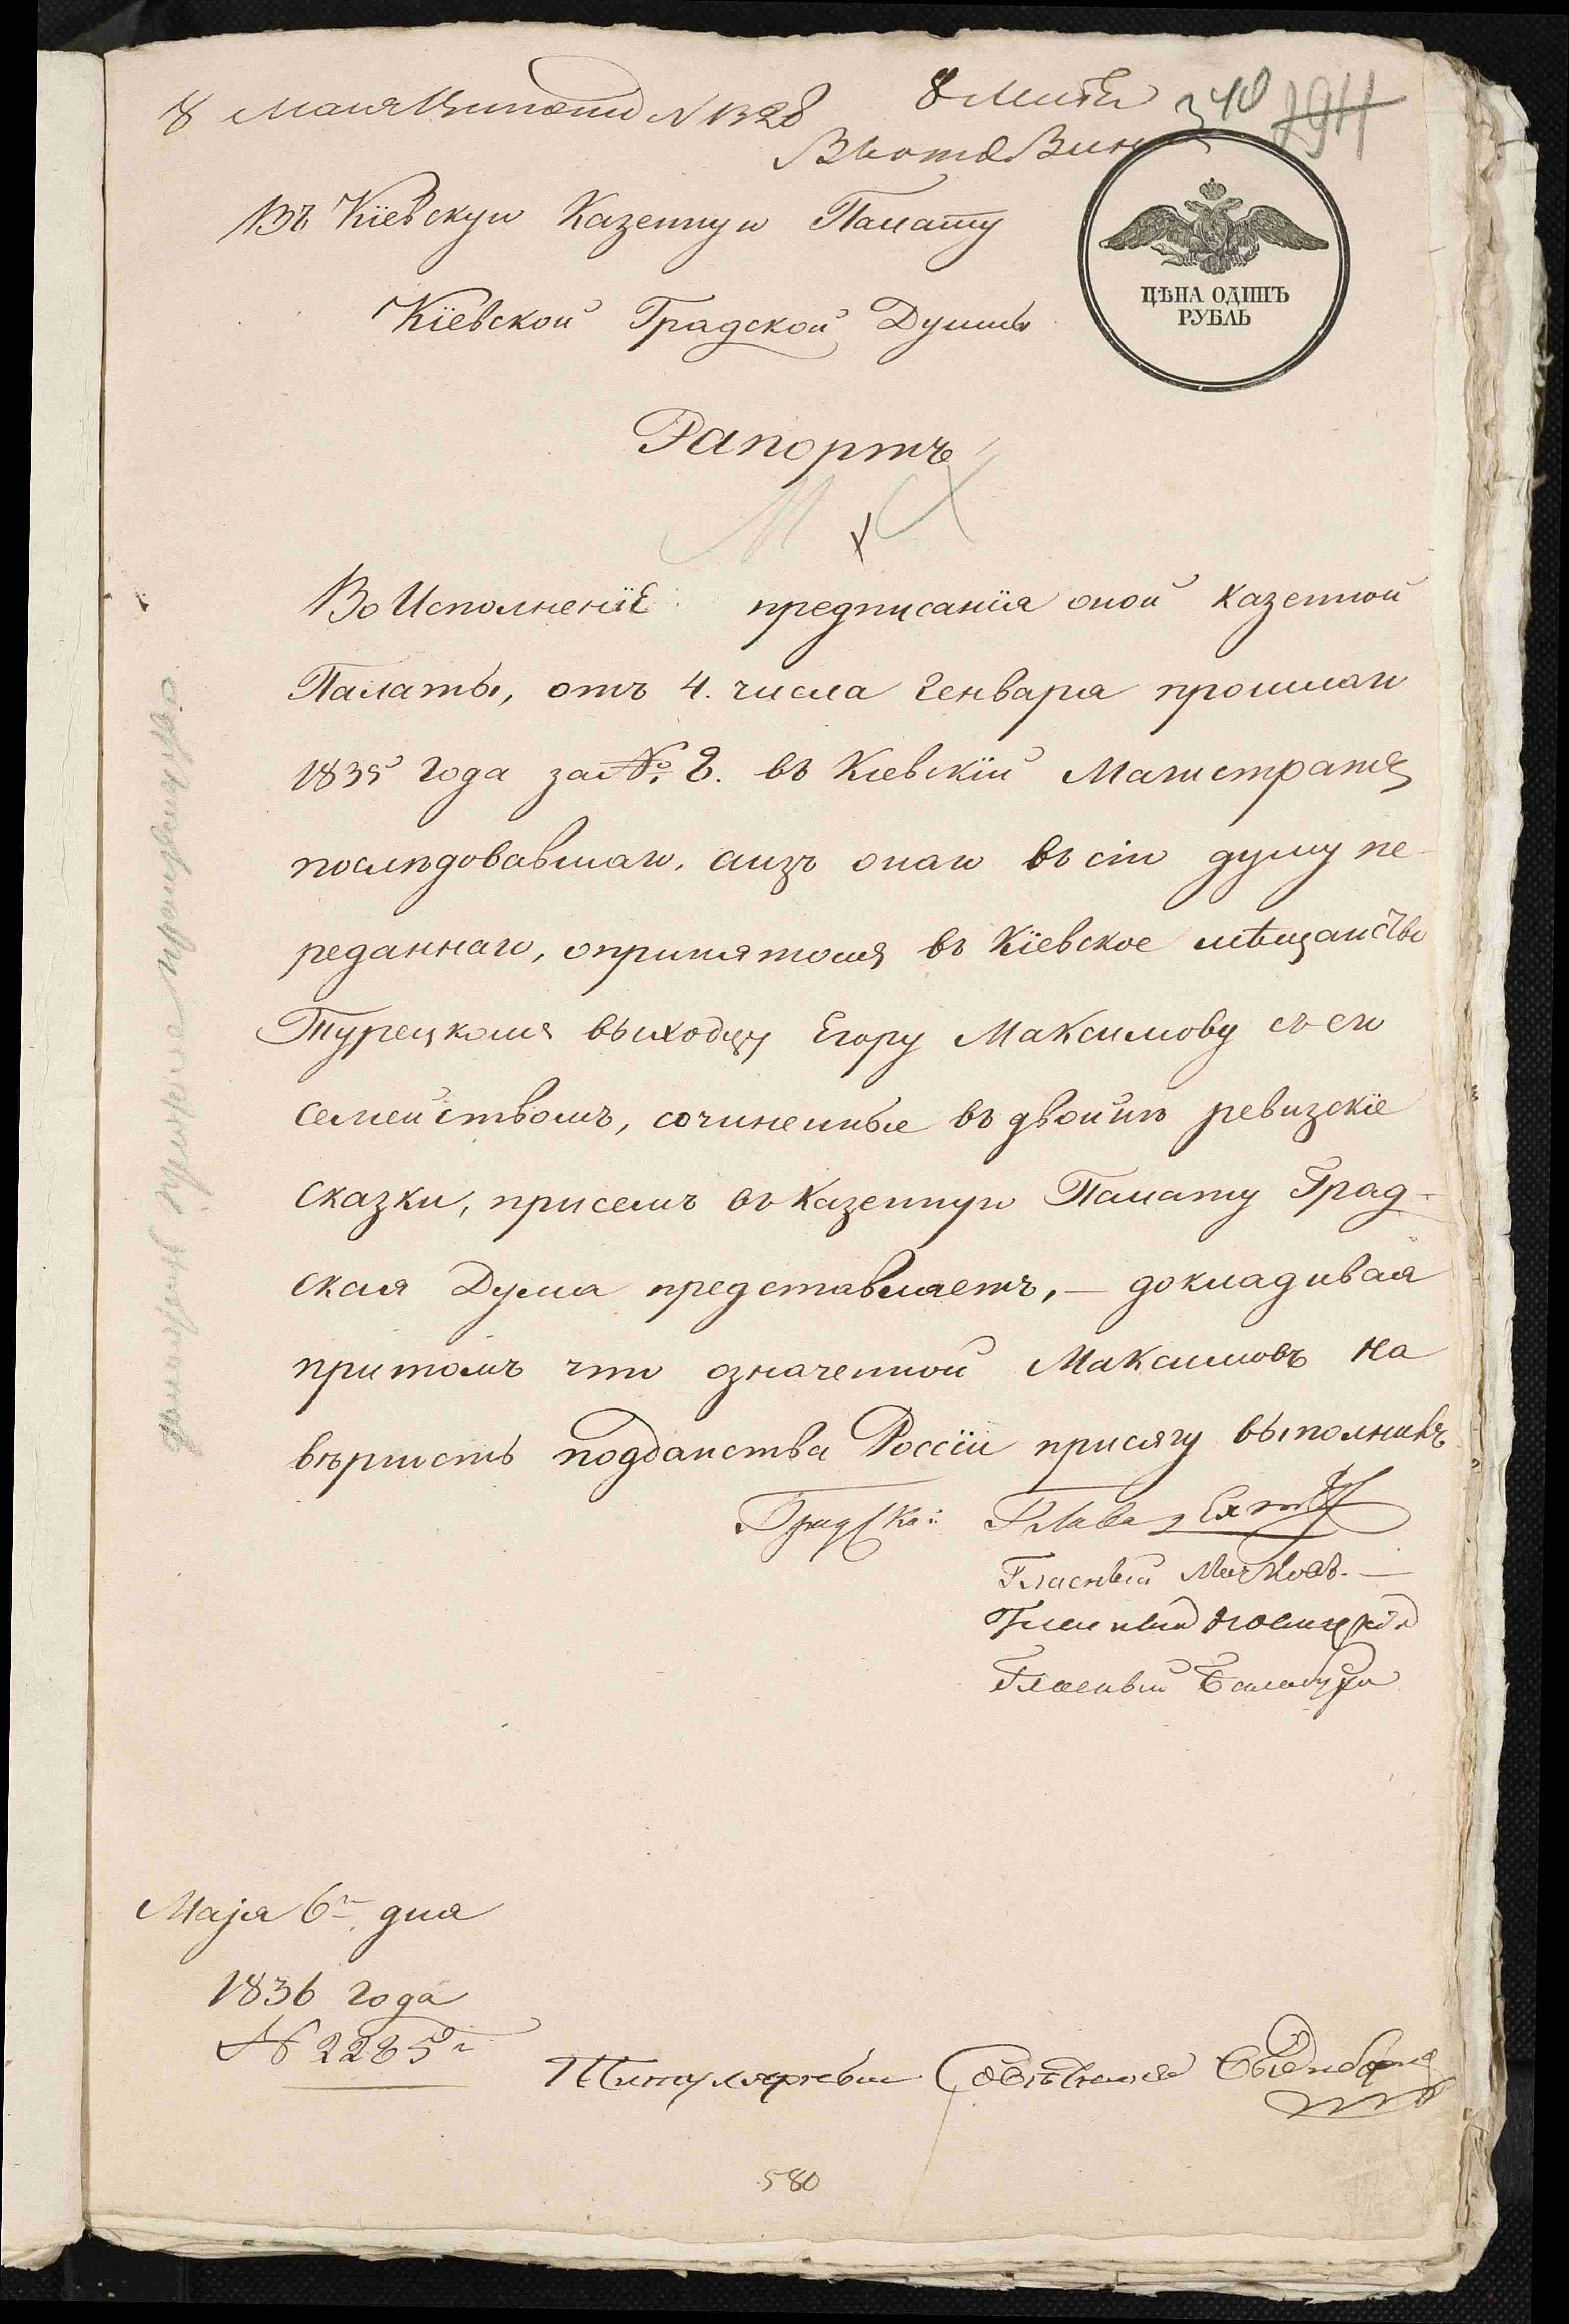 8 Мая № 1328
8 Мая
340
794
Въ Кіевскую Казенную Палату
ЦѢНА ОДИНЪ
РУБЛЬ
Кіевской Градской Думы
Рапортъ
Во Исполненіе предписанія оной Казенной
Палаты, отъ 4. числа Генваря прошлаго
1835 года за №. 8. въ Кіевскій Магистратъ
послѣдовавшаго, аизъ онаго въ сію думу пе-
реданнаго, опринятомъ въ Кіевское мѣщанство
Турецкомъ выходцу Егору Максимову съ его
семействомъ, сочиненные въ двойнѣ ревизскіе
сказки, присемъ въ Казенную Палату Град-
ская Дума представляетъ, — докладивая
притомъ что означенной Максимовъ на
вѣрность подданства Россіи присягу выполнилъ
Градской Глава
Гласный
Гласный
Гласный Балабуха
Маія 6го дня
1836 года
№ 2285
Титулярный Совѣтникъ
580